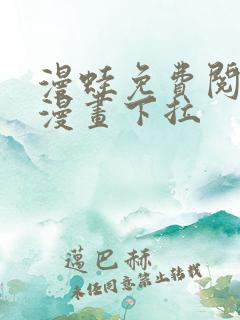 漫蛙免費閱
漫畫下拉
邁巴赫
未经同意禁止转载